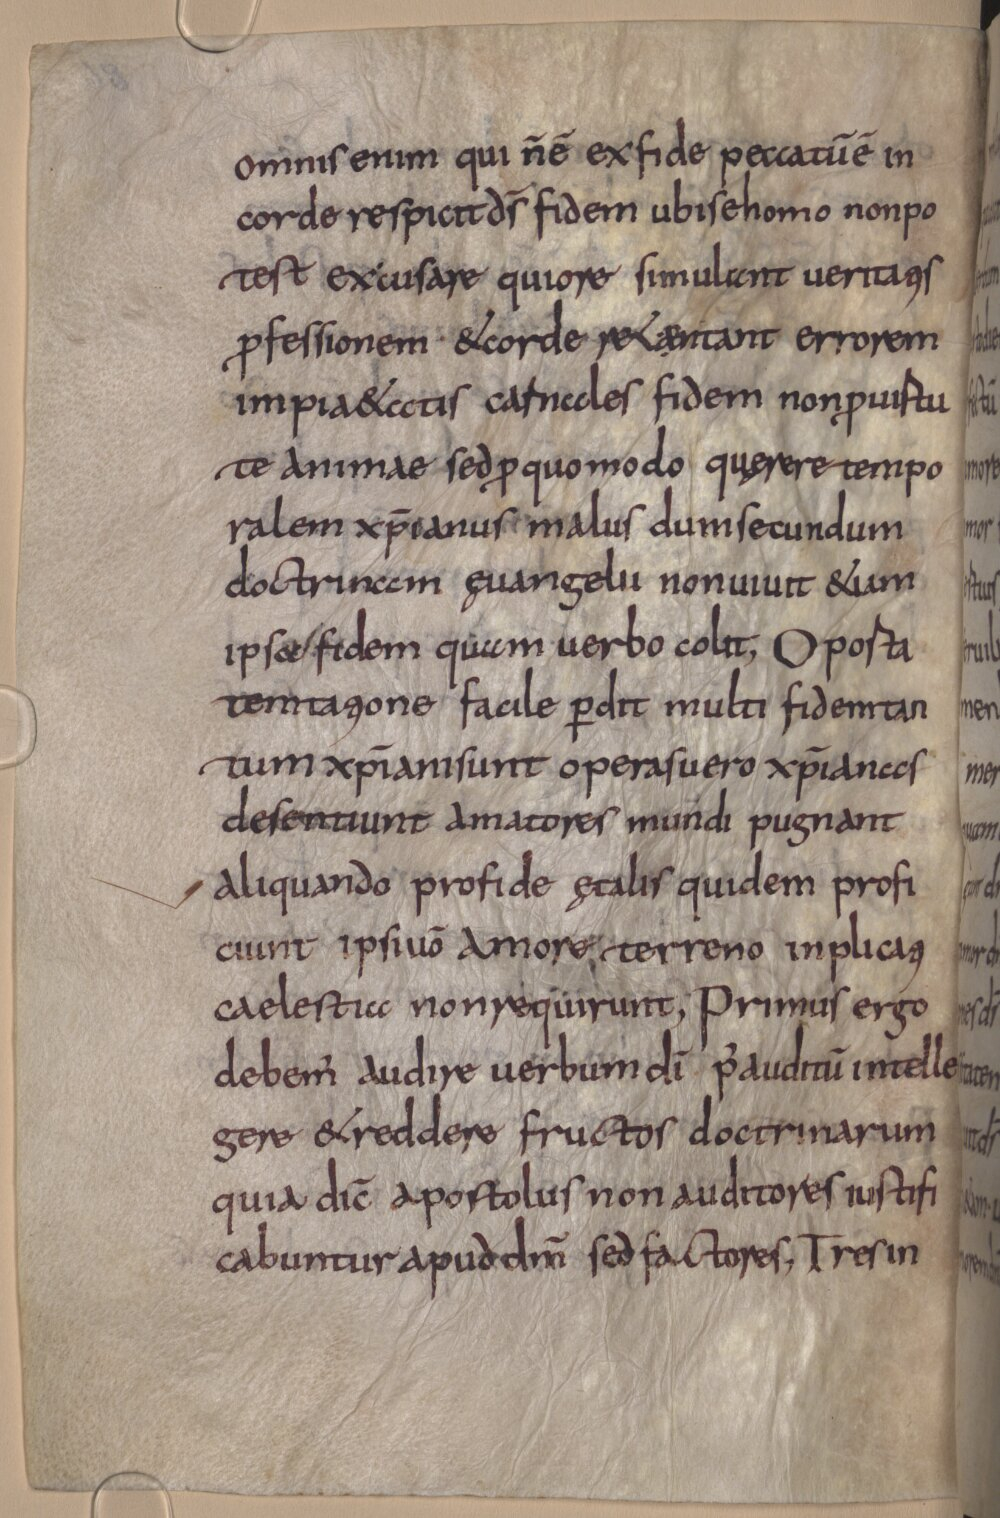 omnis enim qui n̄ ē ex fide peccatū ē in
corde respicit d̄s fidem ubi se homo non po
test excusare qui ore simulant veritatis
ꝓfessionem & corde ret&entant errorem
impia&atis catricales fidem non ꝓ uistu
te animae sed ꝓ quomodo querere tempo
ralem xp̄ianus malus dum secundum
doctrinam ęuangelii non uiuit &iam
ipsa fidem quam uerbo colit; Oposita
temtatione facile ꝑdit multi fidem tan
tum xp̄iani sunt operas uero xp̄ianas
desentiunt amatores mundi pugnant
aliquando pro fide ętalis quidem profi
ciunt ipsi uō amore terreno inplicatis
caelestia non requirunt; Primus ergo
debem̄ audire uerbum dī p̄ auditū intelle
gere & reddere fructos doctrinarum
quia dic̄ apostolus non auditores iustifi
cabuntur apud dm̄ sed factores; Tres in